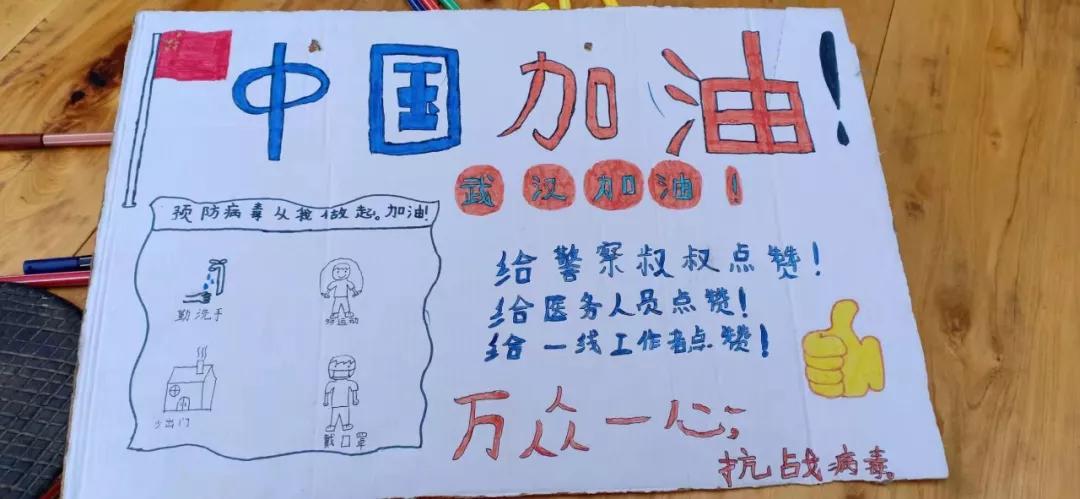 中国加油！
武汉加油！
预防病毒从我做起。加油！
勤洗手
运动
少出门
戴口罩
给警察叔叔点赞！
给医务人员点赞！
给一线工作者点赞！
万众一心；
抗战病毒。